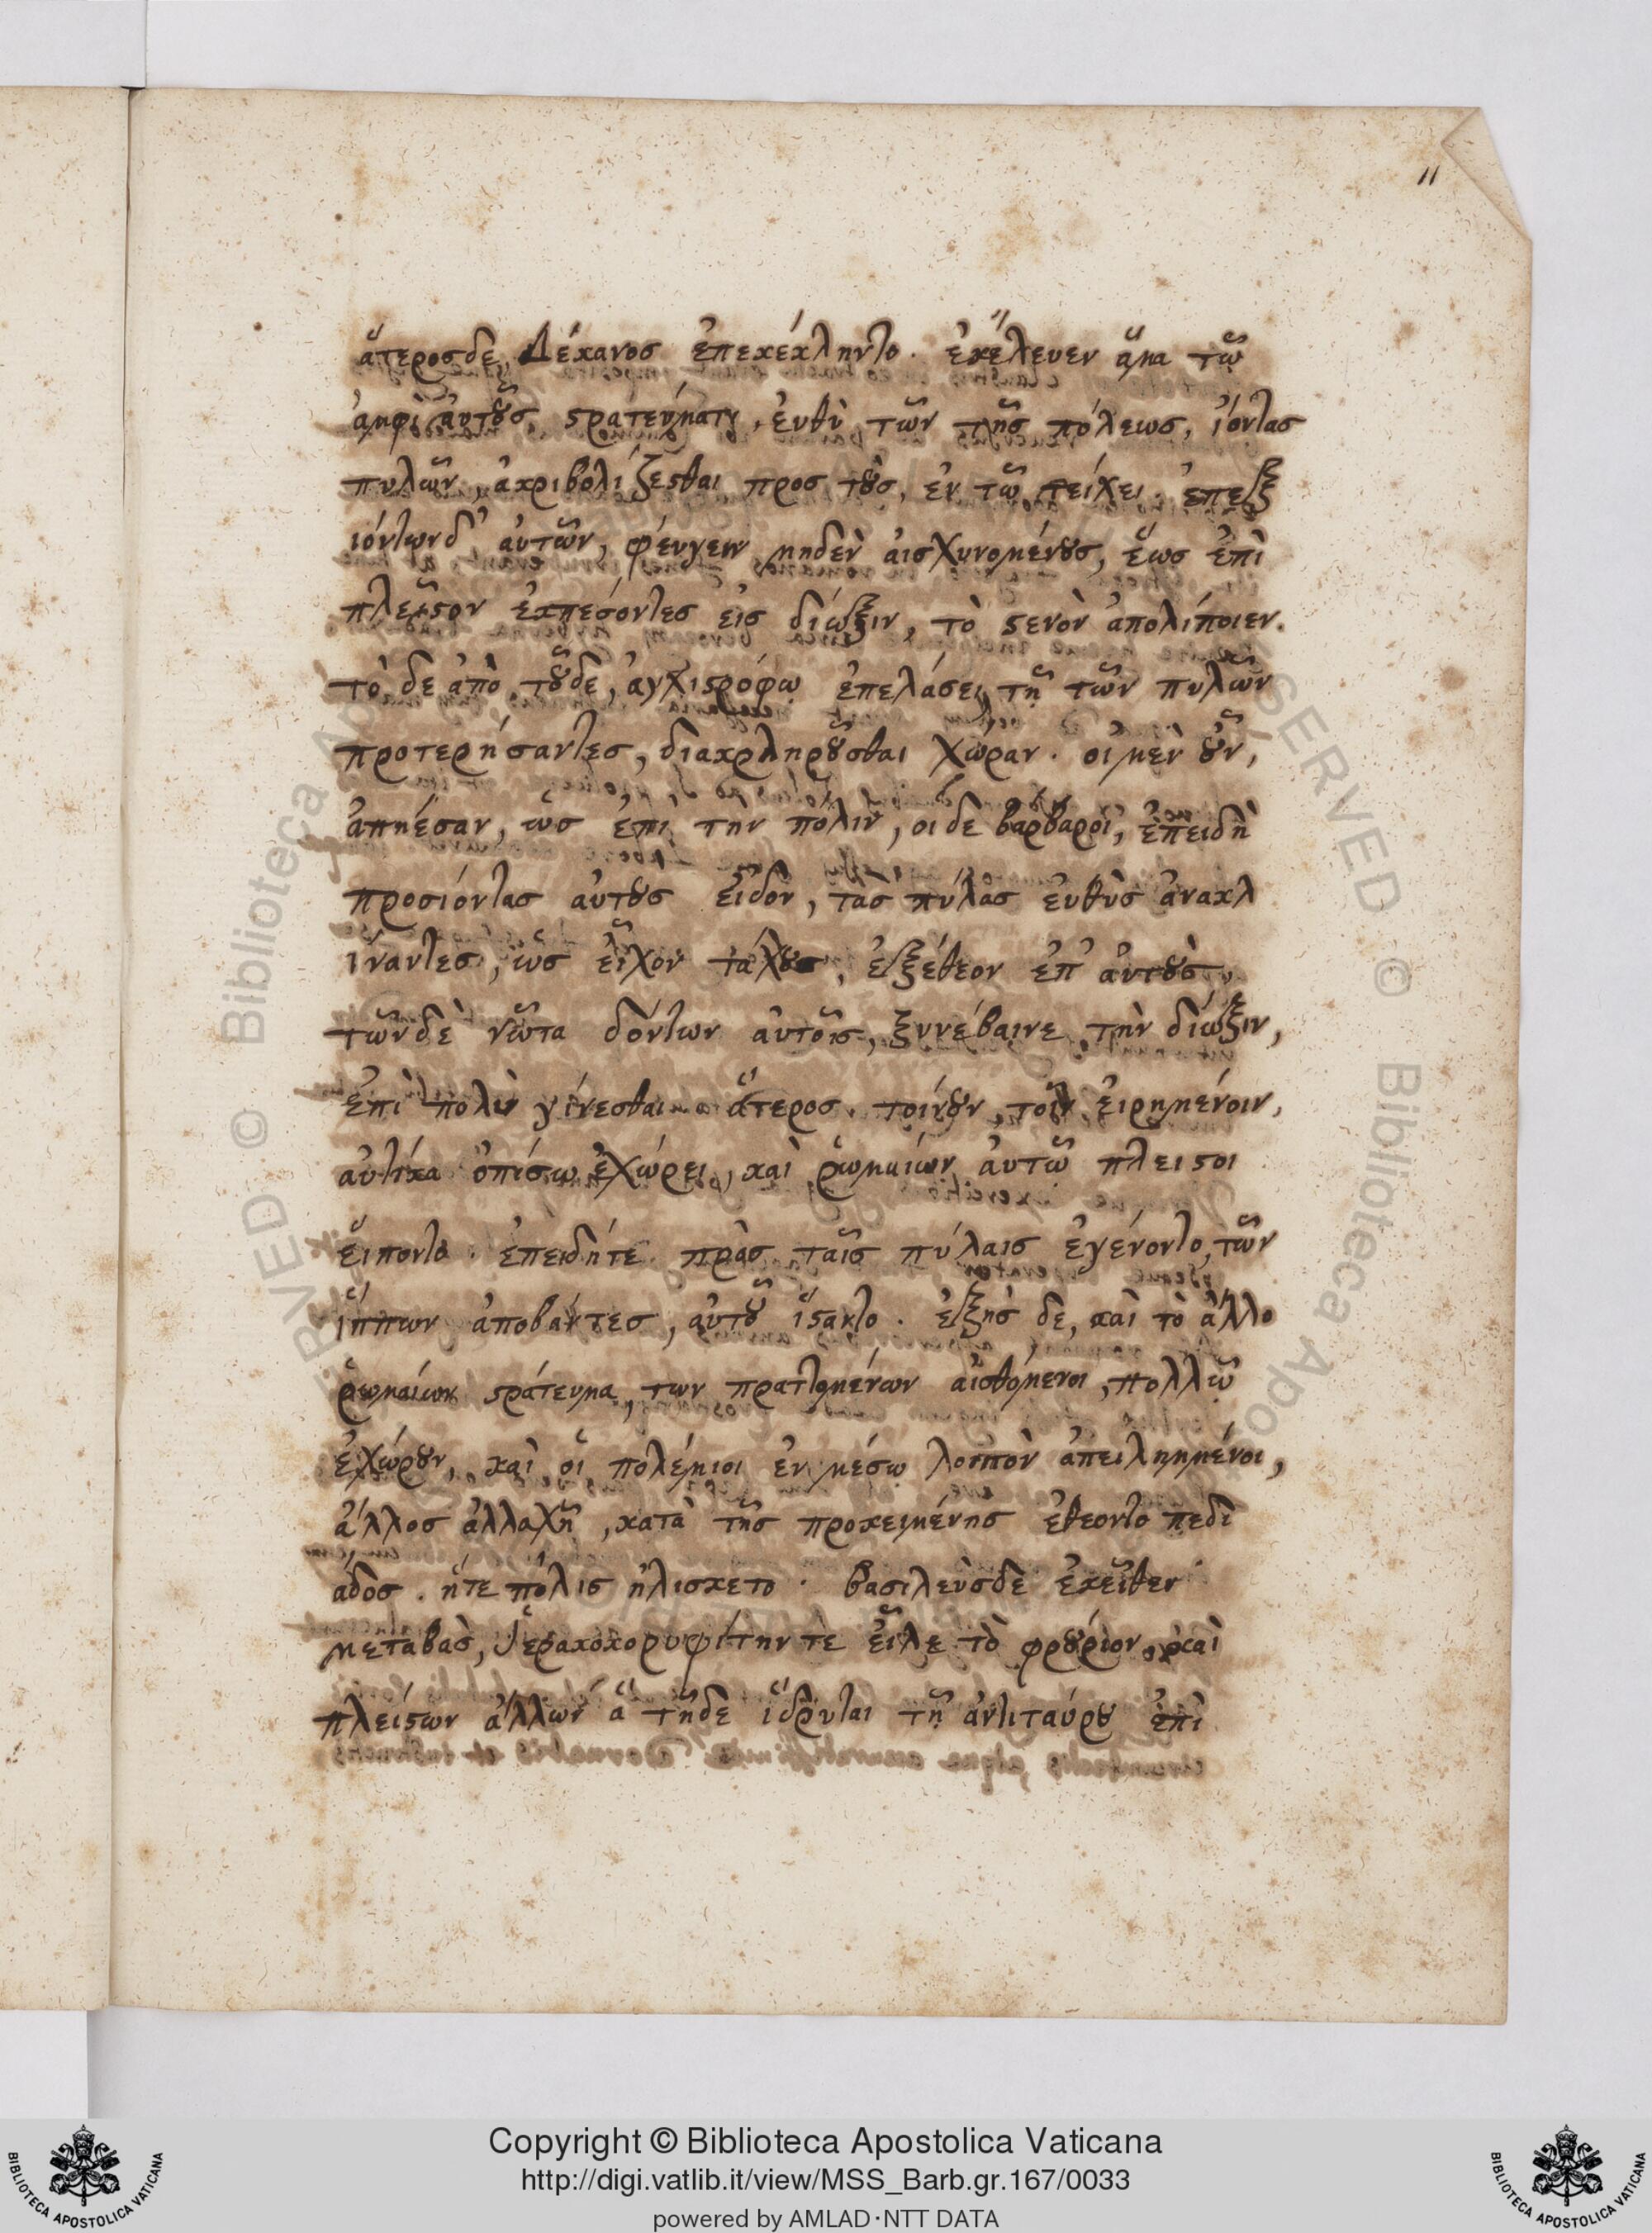 11
ἅτεροσδε, Δέκανοσ ἐπεκέκληντο. ἐκέλευεν ἅμα τῶ
ἀμφὶ ἀυτοῦσ, στράτευματι, ἐυθὺ τῶν τῆσ πόλεωσ, ἰόντασ
πυλῶν, ἀκριβολίζεσθαι προσ τοὺσ, ἐν τῶ τείχει. ἐπεξ
ιόντωνδ' ἀυτῶν, φέυγειν μηδὲν ἀισχυνομένουσ, ἕωσ ἐπὶ
πλεῖστον ἐκπεσόντεσ ἐισ δίωξιν, τὸ στενὸν ἀπολίποιεν.
τὸ δε ἀπὸ τοῦδε, ἀγχιστρόφῳ ἐπελάσει, τῇ τῶν πυλῶν
προτερήσαντεσ, διακληροῦσθαι χώραν. οἱ μὲν οὖν,
ἀπηέσαν, ὡσ ἐπι την πόλιν, οι δε βαρβαροι, ἐπειδὴ
προσιόντασ αὐτουσ εἶδον, τασ πύλασ ἐυθὺσ ἀνακλ
ίναντεσ, ὡσ εἶχον τάχουσ, ἐξέθεον ἐπ' ἀυτοὺσ,
τῶνδὲ νῶτα δόντων ἀυτοῖσ, ξυνέβαινε τὴν δίωξιν,
ἐπὶ πολὺ γίνεσθαι. ἅτεροσ τοίνουν, τοῖν ἐιρημένοιν,
αὐτίκα ὀπίσω ἐχώρει, καὶ ῥωμαιών ἀυτῶ πλειστοι
εἵποντο. ἐπειδήτε πρὸσ ταῖσ πύλαισ ἐγένοντο, τῶν
ἵππων ἀποβάντεσ, ἀυτοῦ ἵσταντο. ἐξῆσ δε, καὶ τὸ ἄλλο
ῥωμαίων στράτευμα, των πραττομένων ἀισθόμενοι, πολλῶ
ἐχώρουν, καὶ οἱ πολέμιοι ἐν μέσῳ λοιπὸν ἀπειλημμένοι,
ἄλλοσ ἀλλαχῆ, κατὰ τῆσ προκειμένησ ἐθεοντο πεδι
αδοσ. ἥτε πόλισ ἡλισκετο. βασιλεὺσδε ἐκεῖθεν
μεταβὰσ, Ἱερακοκορυφίτην τὲ εἷλε τὸ φρούριον, καὶ
πλείστων ἄλλων ἃ τῇδε ἵδρυται τῇ ἀντιταύρου ἐπὶ
RESERVED © Biblioteca Apostolica
Copyright © Biblioteca Apostolica Vaticana
http://digi.vatlib.it/view/MSS_Barb.gr.167/0033
powered by AMLAD·NTT DATA
BIBLIOTECA APOSTOLICA VATICANA
BIBLIOTECA APOSTOLICA VATICANA